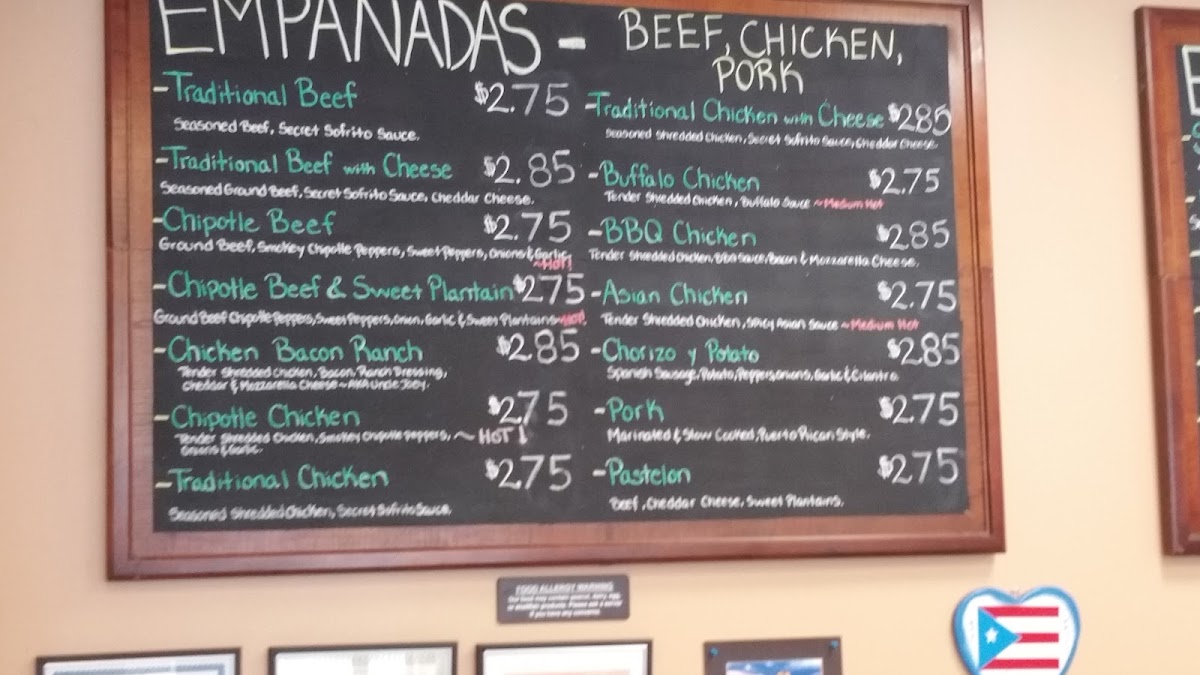 EMPANADAS - BEEF, CHICKEN,
PORK
-Traditional Beef $2.75
Seasoned Beef, Secret Sofrito Sauce.
-Traditional Beef with Cheese $2.85
Seasoned Ground Beef, Secret Sofrito Sauce, Cheddar Cheese.
-Chipotle Beef $2.75
Ground Beef, Smokey Chipotle Peppers, Sweet Peppers, Onions & Garlic
~HOT!
-Chipotle Beef & Sweet Plantain $275
Ground Beef Chipotle Peppers, Sweet Peppers, Onion, Garlic & Sweet Plantains~HOT!
-Chicken Bacon Ranch $285
Tender Shredded Chicken, Bacon, Ranch Dressing,
Cheddar & Mozzarella Cheese ~AKA Uncle Joey.
-Chipotle Chicken $275
Tender Shredded Chicken, Smokey Chipotle Peppers, ~ HOT!
Onions & Garlic.
-Traditional Chicken $275
Seasoned Shredded Chicken, Secret Sofrito Sauce.
-Traditional Chicken with Cheese $285
Seasoned Shredded Chicken, Secret Sofrito Sauce, Cheddar Cheese.
-Buffalo Chicken $2.75
Tender Shredded Chicken, Buffalo Sauce ~Medium Hot
-BBQ Chicken $285
Tender Shredded Chicken, BBQ Sauce, Bacon & Mozzarella Cheese.
-Asian Chicken $2.75
Tender Shredded Chicken, Spicy Asian Sauce ~Medium Hot
-Chorizo y Potato $285
Spanish Sausage, Potato, Peppers, Onions, Garlic & Cilantro
-Pork $2.75
Marinated & Slow Cooked, Puerto Rican Style.
-Pastelon $275
Beef, Cheddar Cheese, Sweet Plantains.
FOOD ALLERGY WARNING
Our food may contain peanut, dairy, egg
or shellfish products. Please ask a server
if you have any concerns.